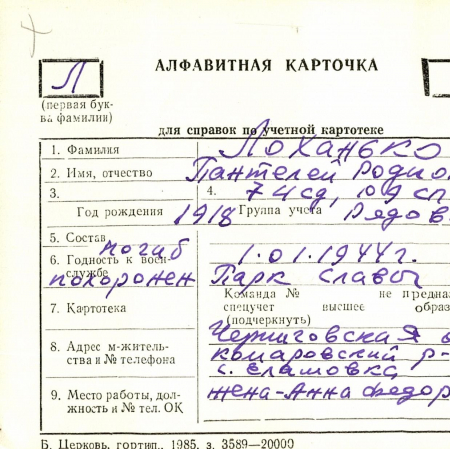 Л
АЛФАВИТНАЯ КАРТОЧКА
(первая бук-
ва фамилии)
для справок по учетной картотеке
1. Фамилия Лоханько
2. Имя, отчество Пантелей Родио
3. 4. 74 сд, 109 сп
Год рождения 1918 Группа учета Рядов
5. Состав
погиб
6. Годность к воен- 1.01.1944 г.
службе
похоронен Парк Славы
Команда № не предна
7. Картотека спецучет высшее образ
(подчеркнуть)
Черниговская о
8. Адрес м-житель- комаровский р-
ства и № телефона с.
9. Место работы, дол- жена-Анна Федор
жность и № тел. ОК
Б. Церковь, гортип., 1985, з. 3589—20000